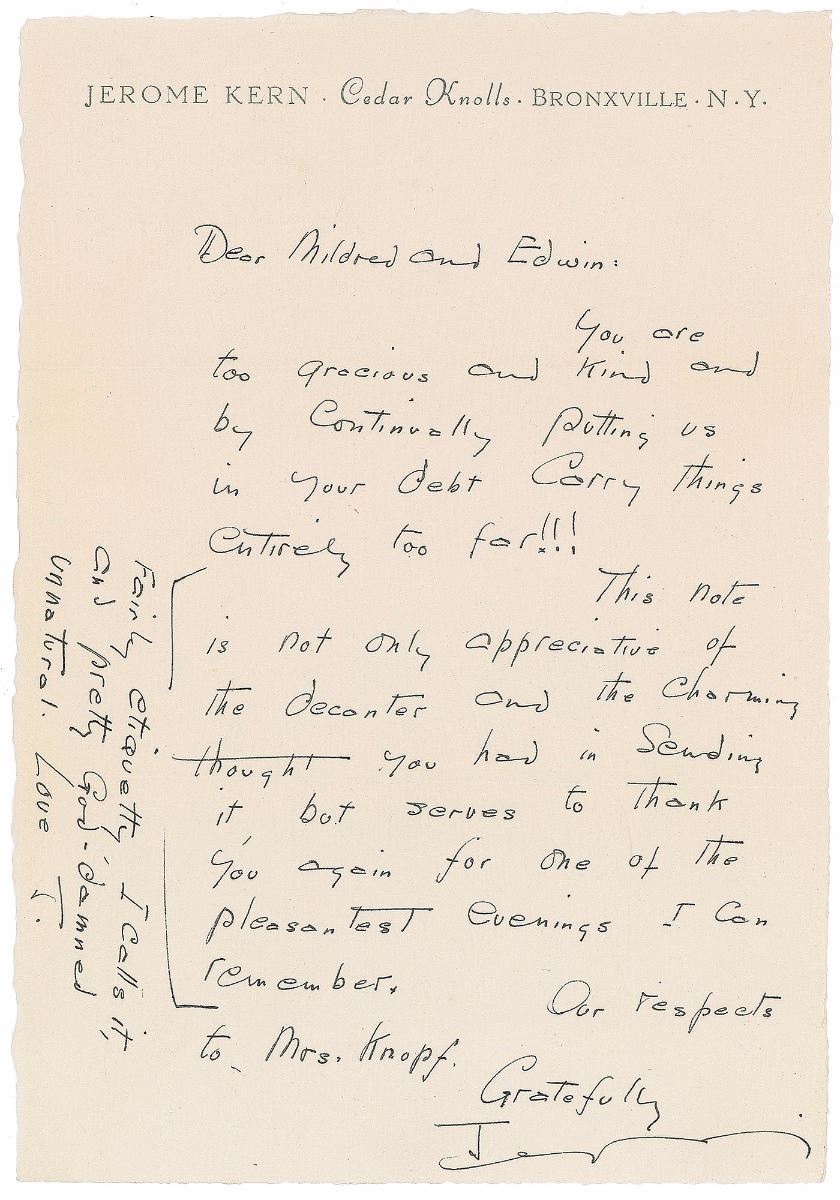 JEROME KERN · Cedar Knolls · BRONXVILLE · N·Y·
Dear Mildred and Edwin:
You are
too gracious and kind and
by continually putting us
in your debt carry things
entirely too far!!!
This note
is not only appreciative of
the decanter and the charming
thought you had in sending
it, but serves to thank
you again for one of the
pleasantest evenings I can
remember.
Our respects
to Mrs. Knopf.
Gratefully
Fairly etiquetty I calls it,
and pretty God-damned
unnatural. Love J.